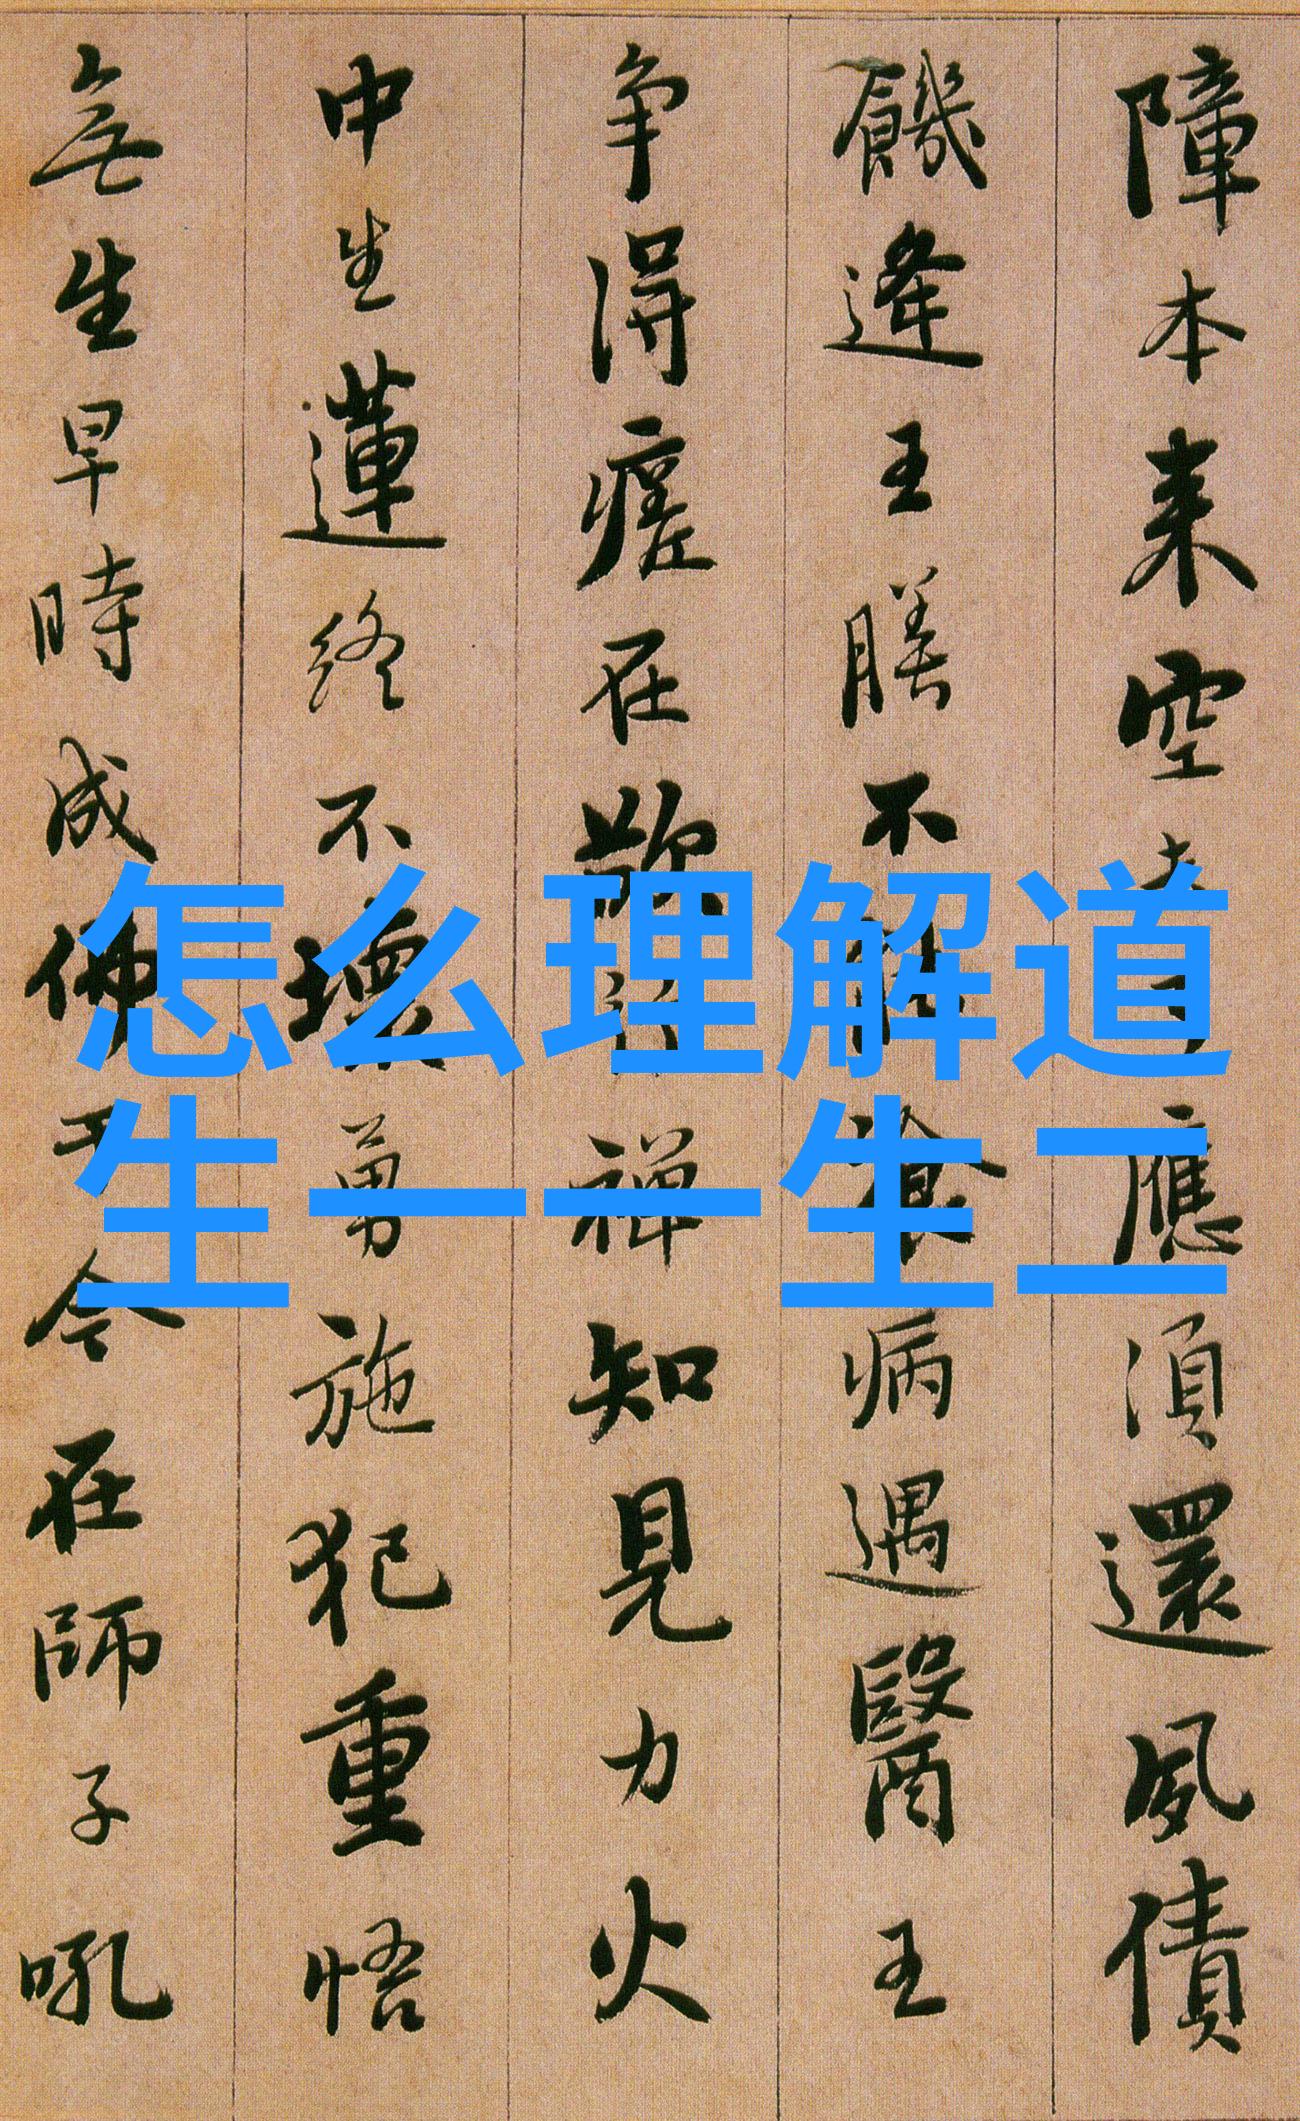 怎么理解道
生一一生二
障本来空應須還夙債
饑逢王膳不飡病遇醫王
争得瘥在欲禪知見力火
中生蓮終不壞勇施犯重悟
無生早時成佛于今在師子吼